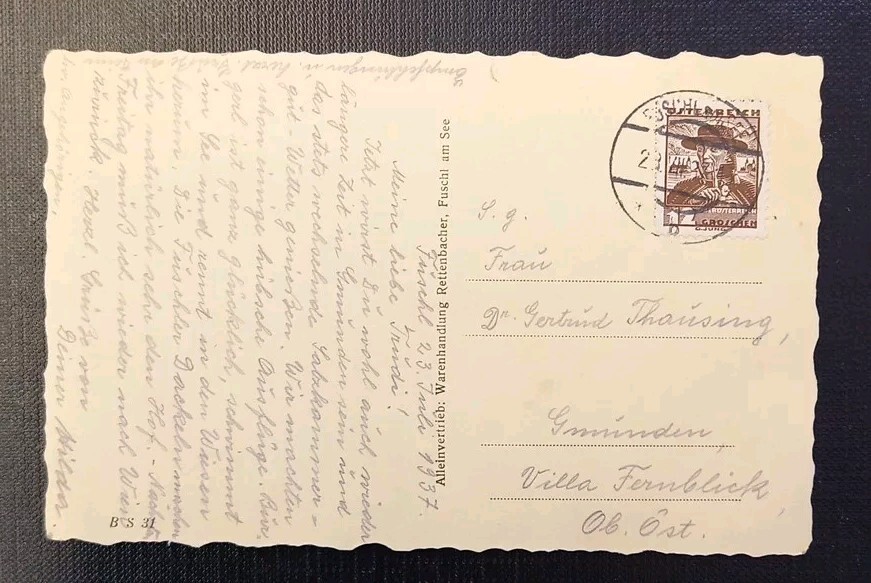 Fuschl 23. Juli 1937.
Meine liebe Trudi!
Jetzt wirst Du wohl auch wieder
längere Zeit in Gmunden sein und
das stets wechselnde Salzkammer-
gut-Wetter genießen. Wir machten
schon einige hübsche Ausflüge.
gerl ist ganz glücklich, schwimmt
im See und rennt in den Wiesen
herum. Die Fuschler Dackeln machen
ihr natürlich sehr den Hof. -
Freitag muß ich wieder nach Wien
zurück. Herzl. Grüße von
Deiner Hilda.
Empfehlungen u. herzl. Grüße an
Angehörigen.
Alleinvertrieb: Warenhandlung Rettenbacher, Fuschl am See
B S 31
FUSCHL
ÖSTERREICH
GROSCHEN
S. g.
Frau
Dr. Gertrud Thausing,
Gmunden
Villa Fernblick,
Ob. Öst.